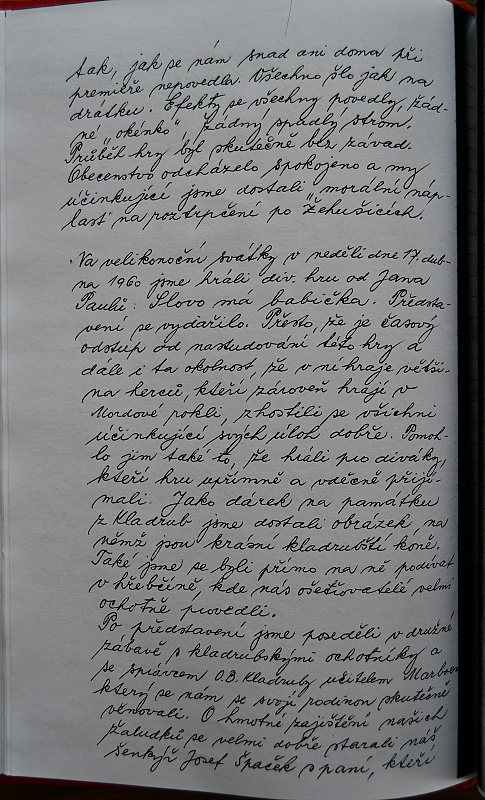 tak, jak se nám snad ani doma při
premiéře nepovedla. Všechno šlo jak na
drátku. Efekty se všechny povedly, žád-
né „okénko", žádný spadlý strom.
Průběh hry byl skutečně bez závad.
Obecenstvo odcházelo spokojeno a my
účinkující jsme dostali morální náp-
last na roztrpčení po Žehušicích.
Na velikonoční svátky v neděli dne 17. dub-
na 1960 jsme hráli div. hru od Jana
Paulů: Slovo má babička. Předsta-
vení se vydařilo. Přesto, že je časový
odstup od nastudování této hry a
dále i ta okolnost, že v ní hraje větši-
na herců, kteří zároveň hrají v
Mordové rokli, zhostili se všichni
účinkující svých úloh dobře. Pomoh-
lo jim také to, že hráli pro diváky,
kteří hru upřímně a vděčně přijí-
mali. Jako dárek na památku
z Kladrub jsme dostali obrázek, na
němž jsou krásní kladrubští koně.
Také jsme se byli přímo na ně podívat
v hřebčíně, kde nás ošetřovatelé velmi
ochotně provedli.
Po představení jsme poseděli v družné
zábavě s kladrubskými ochotníky a
se správcem O.B. Kladruby učitelem
který se nám se svojí rodinou skutečně
věnovali. O hmotné zajištění našich
žaludků se velmi dobře starali náš
šenkýř Josef Špaček s paní, kteří